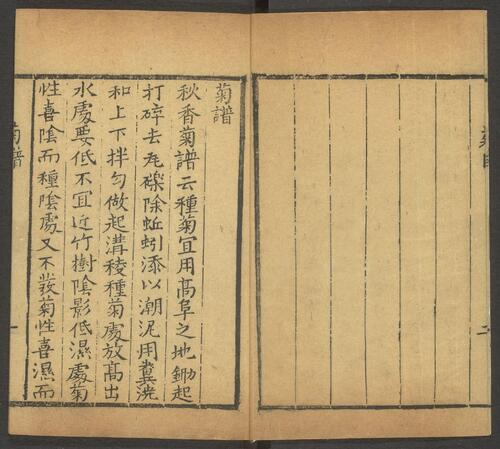 菊譜
秋香菊譜云種菊宜用高阜之地鋤起
打碎去瓦礫除蚯蚓添以潮泥用糞澆
和上下拌勻做起溝稜種菊處放高出
水處要低不宜近竹樹陰影低濕處菊
性喜陰而種陰處又不發菊性喜濕而
菊譜
一
二